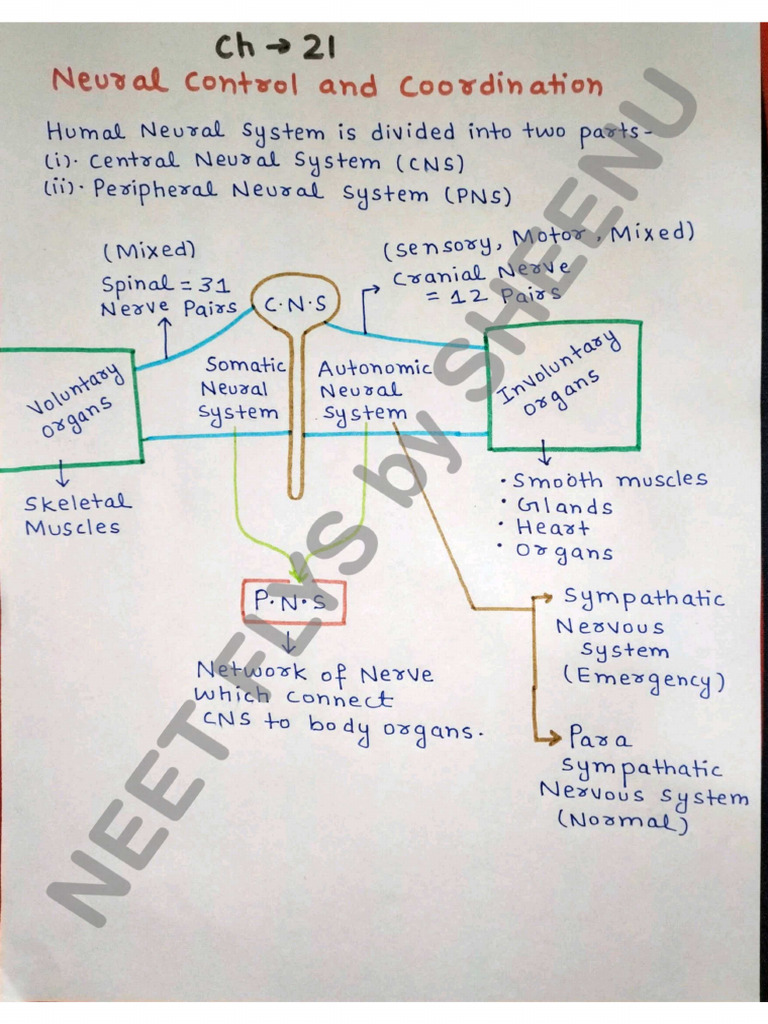 Ch → 21
Neural Control and Coordination
Humal Neural System is divided into two parts-
(i). Central Neural System (CNS)
(ii). Peripheral Neural System (PNS)
(Mixed)
Spinal = 31
Nerve Pairs
C.N.S
(Sensory, Motor, Mixed)
Cranial Nerve
= 12 Pairs
Voluntary
organs
Somatic
Neural
System
Autonomic
Neural
System
Involuntary
organs
Skeletal
Muscles
• Smooth muscles
• Glands
• Heart
• Organs
P.N.S
Network of Nerve
which connect
CNS to body organs.
Sympathatic
Nervous
System
(Emergency)
Para
Sympathatic
Nervous System
(Normal)
NEET FLYS by SHEENU